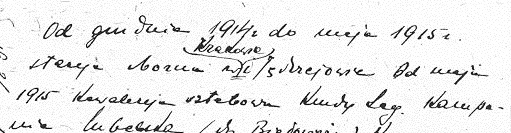 Od grudnia 1914 r. do maja 1915 r.
Krakowa
stacja zborna w Jędrzejowie Od maja
1915 Kawalerja sztabowa Kmdy Leg. Kampa-
nia lubelska